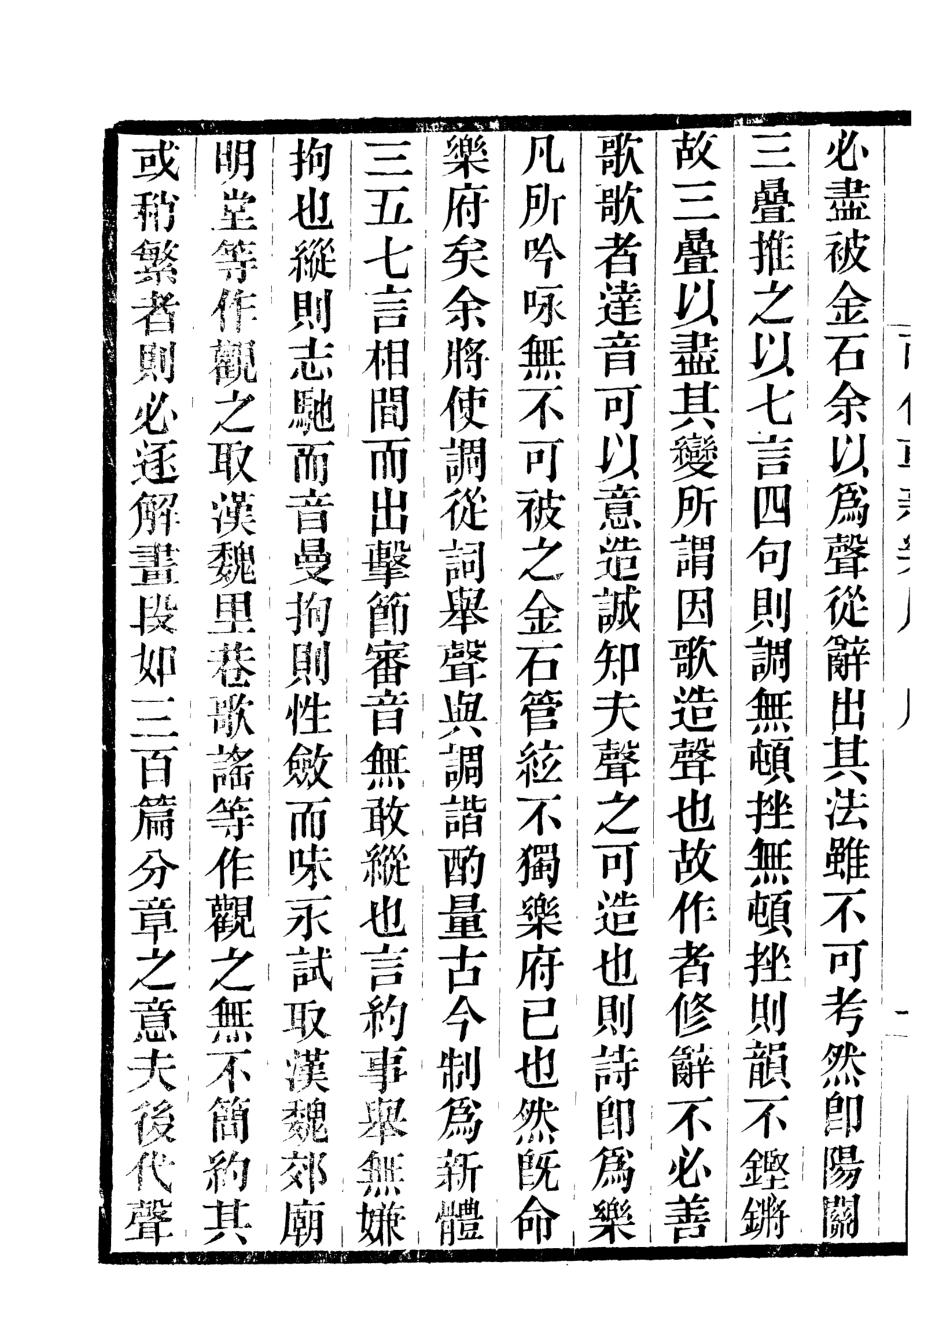 必盡被金石余以爲聲從辭出其法雖不可考然卽陽關
三疊推之以七言四句則調無頓挫無頓挫則韻不鏗鏘
故三疊以盡其變所謂因歌造聲也故作者修辭不必善
歌歌者達音可以意造誠知夫聲之可造也則詩卽爲樂
凡所吟咏無不可被之金石管絃不獨樂府已也然旣命
樂府矣余將使調從詞舉聲與調諧酌量古今制爲新體
三五七言相間而出擊節審音無敢縱也言約事舉無嫌
拘也縱則志馳而音曼拘則性斂而味永試取漢魏郊廟
明堂等作觀之取漢魏里巷歌謠等作觀之無不簡約其
或稍繁者則必逐解畫段如三百篇分章之意夫後代聲